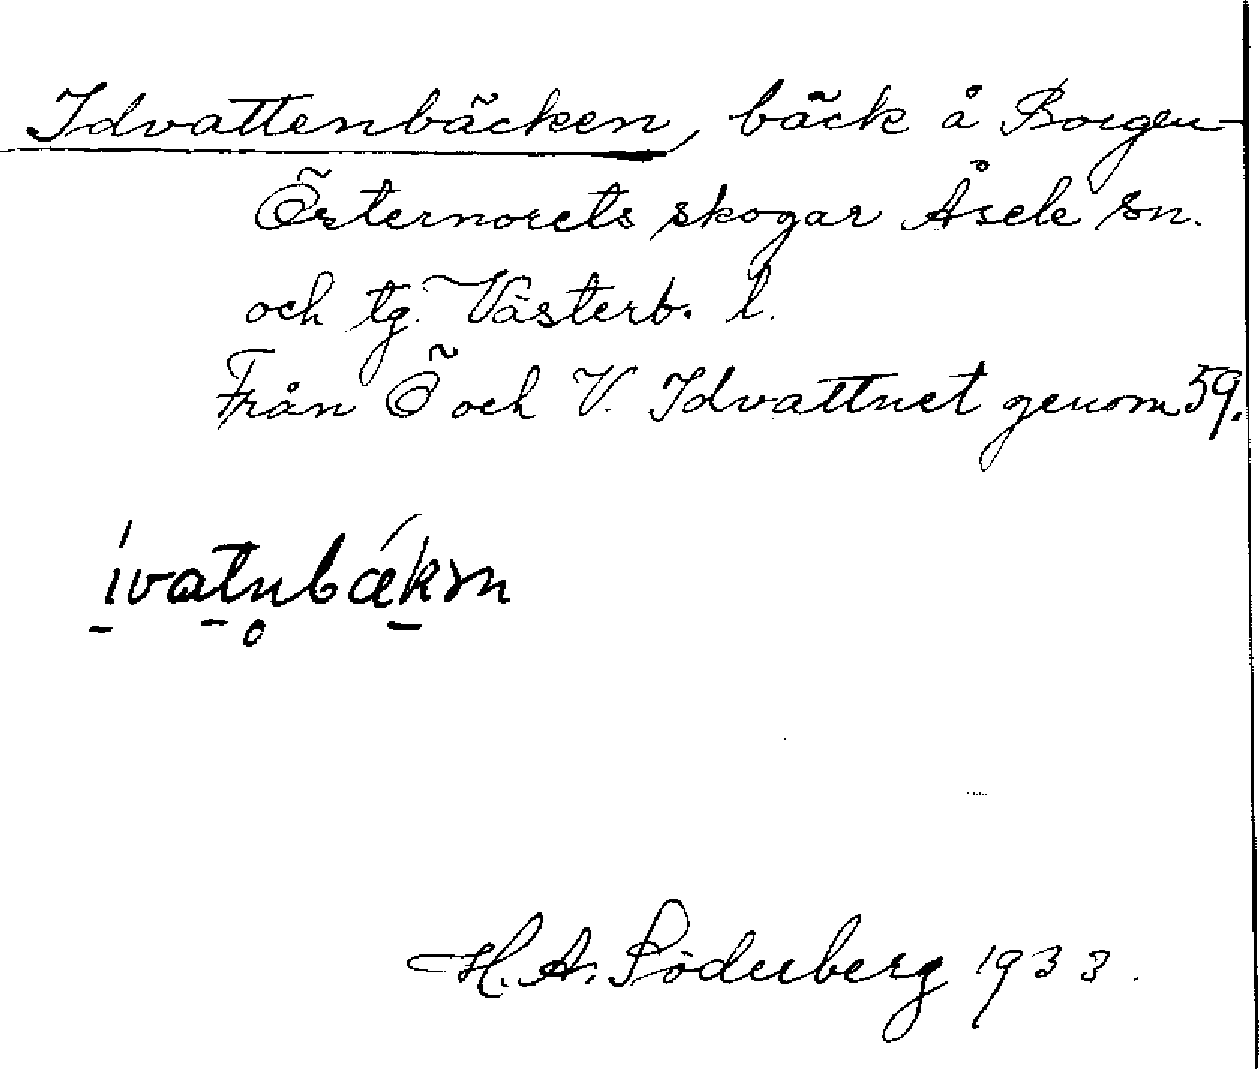 Idvattenbäcken, bäck å Borgen-
Östernorets skogar Åsele sn.
och tg. Västerb. l.
Från Ö och V. Idvattnet genom 59.
H. A. Söderberg 1933.